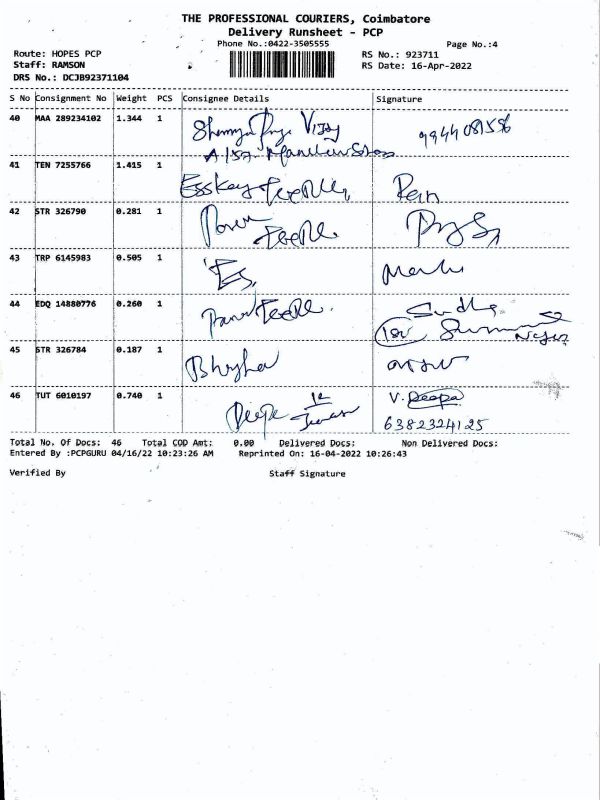 THE PROFESSIONAL COURIERS, Coimbatore
Delivery Runsheet - PCP
Phone No.:0422-3505555
Page No.:4
Route: HOPES PCP
RS No.: 923711
Staff: RAMSON
RS Date: 16-Apr-2022
DRS No.: DCJB92371104
S No Consignment No Weight PCS Consignee Details Signature
40 MAA 289234102 1.344 1 Vijay 9944081556
A/157
41 TEN 7255766 1.415 1 Esskay Textile
42 STR 326790 0.281 1
43 TRP 6145983 0.505 1
44 EDQ 14880776 0.260 1 Sudha
45 STR 326784 0.187 1
46 TUT 6010197 0.740 1 Deepa 12 V. Deepa
6382324125
Total No. Of Docs: 46 Total COD Amt: 0.00 Delivered Docs: Non Delivered Docs:
Entered By :PCPGURU 04/16/22 10:23:26 AM Reprinted On: 16-04-2022 10:26:43
Verified By Staff Signature